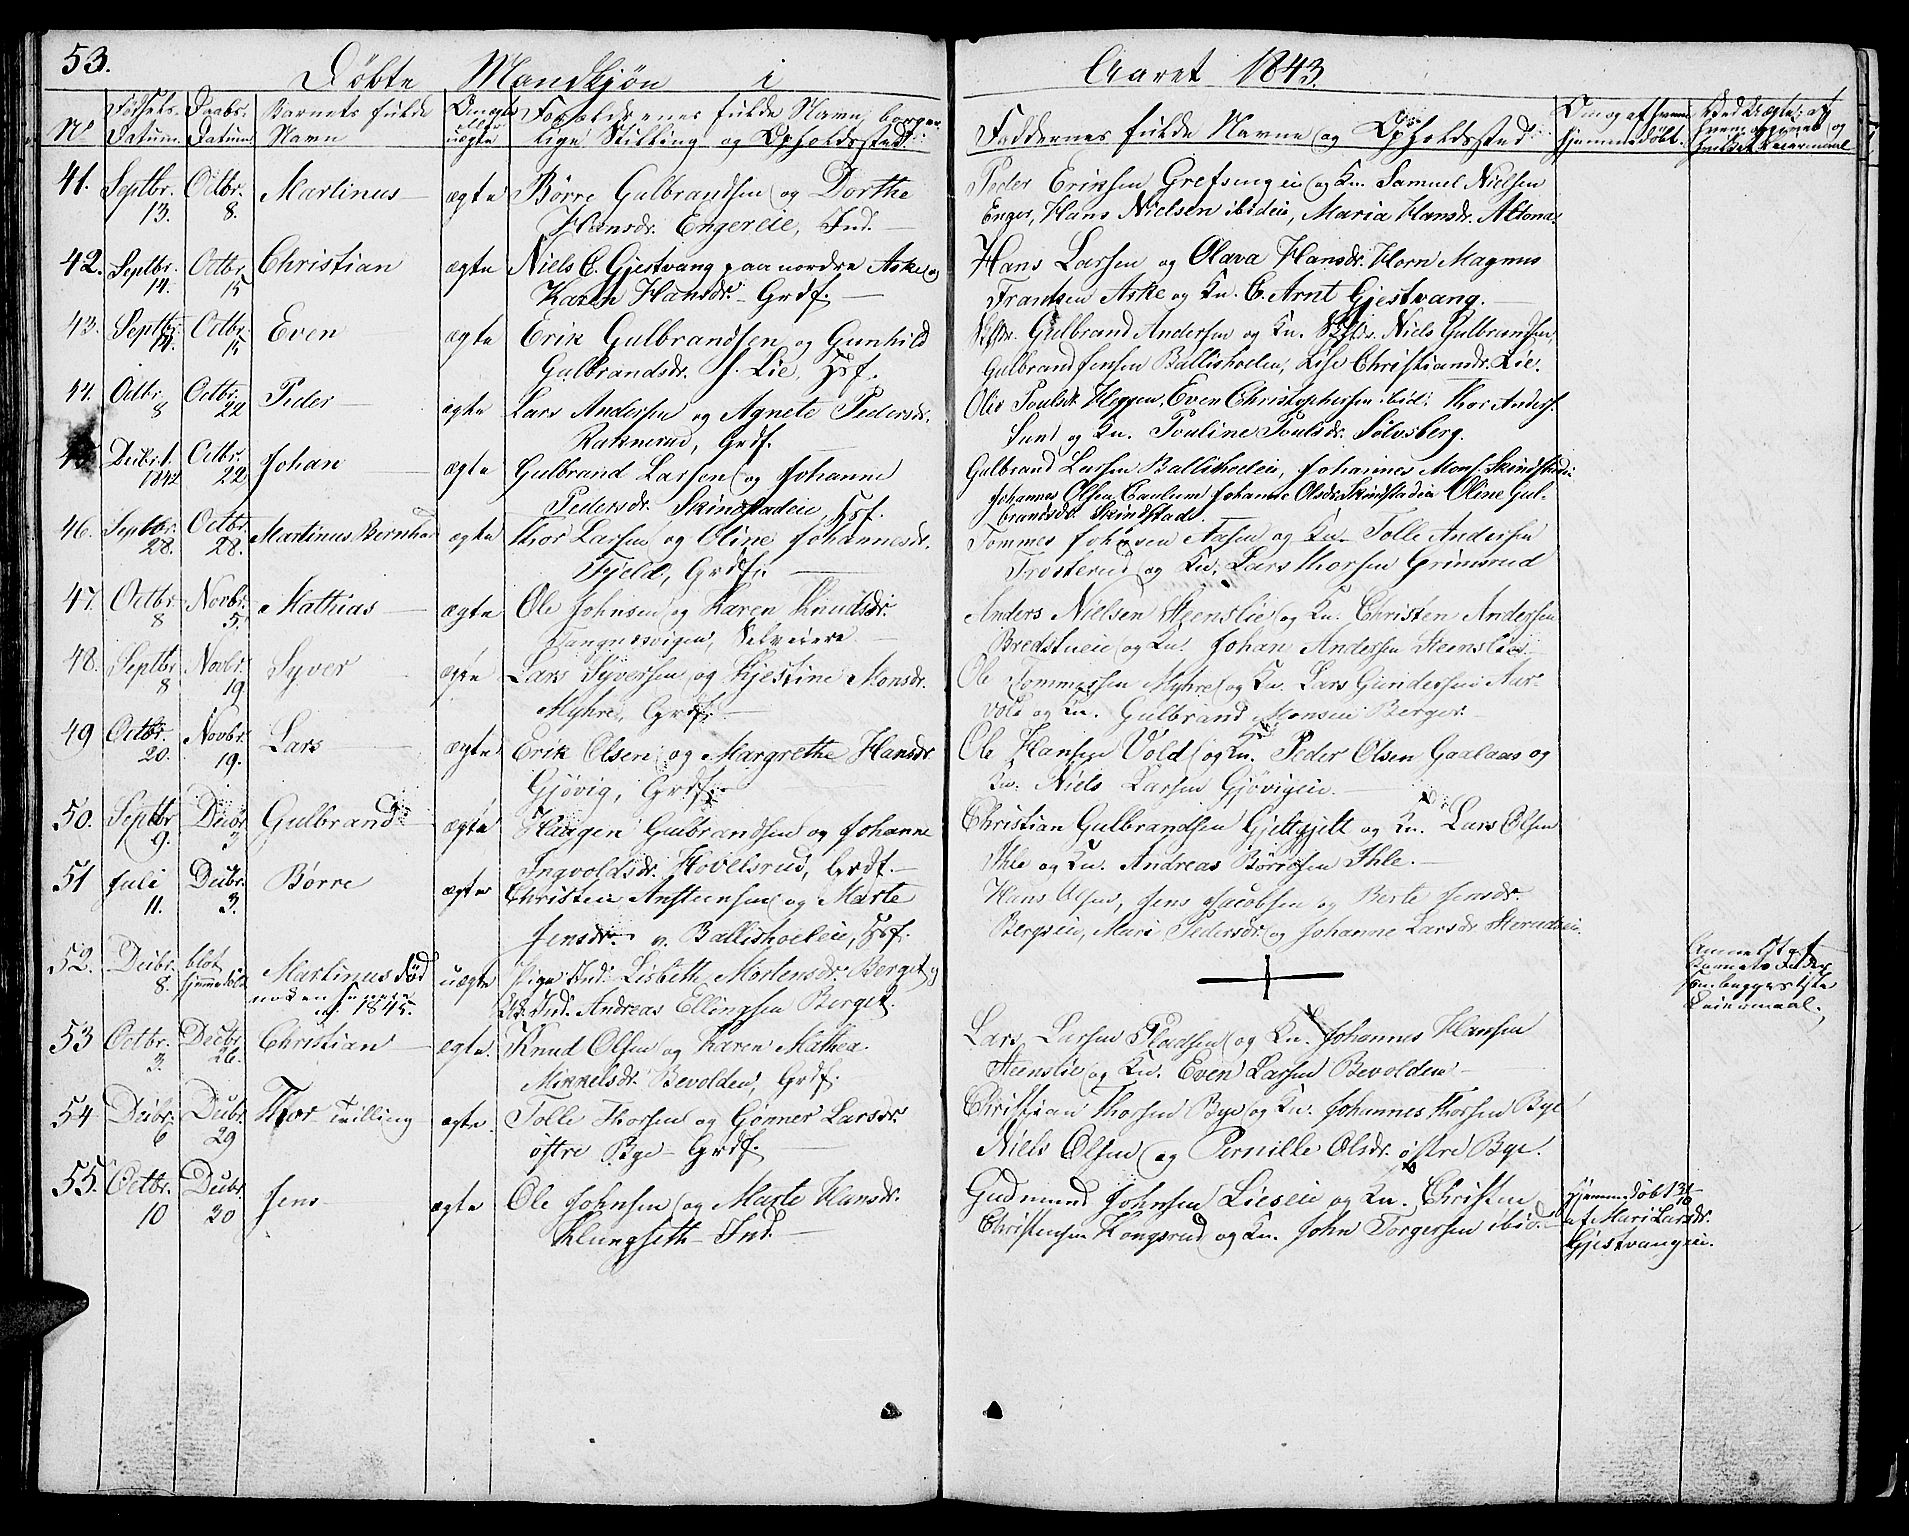 53.
Døbte Mandkjøn i Aaret 1843.
No
Fødsels Datum.
Daabs Datum
Barnets fulde Navn
Om ægte eller uægte
Forældrenes fulde Navn, borgerlige Stilling og Opholdssted.
Faddernes fulde Navne og Opholdssted.
Om og af hvem hjemmedøbt.
41. Septbr. 13. Octbr. 8. Martinus ægte Børre Gulbrandsen og Dorthe
Hansdr. Engereie, Ind.
Peder Eriksen Grefsengeie og Km. Samuel Nielsen
Enger, Hans Nielsen ibideie, Maria Hansdr. Altona
42. Septbr. 14. Octbr. 15 Christian ægte Niels C. Gjestvang paa nordre Aske og
Karen Hansdr. Grdf.
Hans Larsen og Olava Hansdr. Horn Magnus
Frantsen Aske og Kn. C. Arnt Gjestvang.
43. Septbr. 14. Octbr. 15 Even ægte Erik Gulbrandsen og Gunhild
Gulbrandsdr. Lie, Hsf.
Gulbrand Andersen og Kn. Niels Gulbrandsen,
Gulbrand Jensen Ballishoelen, Lise Christiansdr. Lie.
44. Octbr. 8 Octbr. 22 Peder ægte Lars Andersen og Agnete Pedersdr.
Ruknerud, Grdf.
Ole Poulsk Heggen, Even Christophersen ibid. Thor Anders.
Lund og Kn. Pouline Poulsdr. Sølvsberg.
Decbr. 1. 1842 Octbr. 22 Johan ægte Gulbrand Larsen og Johanne
Pedersdr. Skindstadeie, Hsf.
Gulbrand Larsen Ballishoeleie, Johannes Mons. Skindstadei
Johannes Olsen Johanne Olsdr. Skindstadeie Oline Gul-
brandsdr. Skindstad.
46. Septbr. 28. Octbr. 28. Martinus Bernhard ægte Thor Larsen og Oline Johannesdr.
Fjeld, Grdf.
Tommes Johnsen Aasen og Kn. Tolle Andersen
Trosterud og Kn. Lars Thorsen Grimsrud
47. Octbr. 8 Novbr. 5. Mathias ægte Ole Johnsen og Karen Knudsdr.
Tangnæsvigen, Selveiere
Anders Nielsen Steenslie og Kn. Christen Andersen
Bredstueie og Kn. Johan Andersen Steenslie
48. Septbr 8 Novbr. 19 Syver ægte Lars Syversen og Kjestine Monsdr.
Myhre, Grdf.
Ole Tommessen Myhre og Kn. Lars Gundersen Aar-
vold og Kn. Gulbrand Monsen Berger.
49 Octbr. 20. Novbr. 19. Lars ægte Erik Olsen og Margrethe Hansdr.
Gjøvig, Grdf.
Ole Hansen Vold og Kn. Peder Olsen Gaalaas og
Kn. Niels Larsen Gjøvigeie.
50. Septbr 9. Decbr 3 Gulbrand ægte Haagen Gulbrandsen og Johanne
Ingvoldsdr. Hovelsrud, Grdf.
Christian Gulbrandsen Gjeltgjelt og Kn. Lars Olsen
Ihle og Kn. Andreas Børresen Ihle.
51 Juli 11. Decbr. 3. Børre ægte Christen Anstensen og Marte
Jensdr. v. Ballishoeleie, Hsf.
Hans Olsen, Jens Jacobsen og Berte Jensdr.
Bergseie, Mari Pedersdr. og Johanne Larsdr.
52. Decbr. 8. blot hjemmedøbt Martinus Fød
1845.
uægte Pige Ind. Lisbeth Mortensdr. Berget og
Ind. Andreas Ellingsen Berget.
Anmeldt af
Barnets Fader
Leiermaal.
53 Octbr. 3. Decbr. 26. Christian ægte. Knud Olsen og Karen Mathea
Mikkelsdr. Bevolden, Grdf.
Lars Larsen Pladsen og Kn. Johannes Hansen
Steenslie og Kn. Even Larsen Bevolden
54 Decbr. 6 Decbr. 29 Thor Tvilling ægte. Tolle Thorsen og Gønner Larsdr.
østre Bye Grdf.
Christian Thorsen Bye og Kn. Johannes Thorsen Bye
Niels Olsen og Pernille Olsdr. østre Bye.
55. Octbr. 10 Decbr. 30 Jens ægte Ole Johnsen og Marte Hansdr.
Klungseth Ind.
Gudmund Johnsen Lieseie og Kn. Christen
Christensen Kongsrud og Kn. John Torgersen ibid.
Hjemmedøbt 13/10
af Mari Larsdr.
Gjestvangeie.